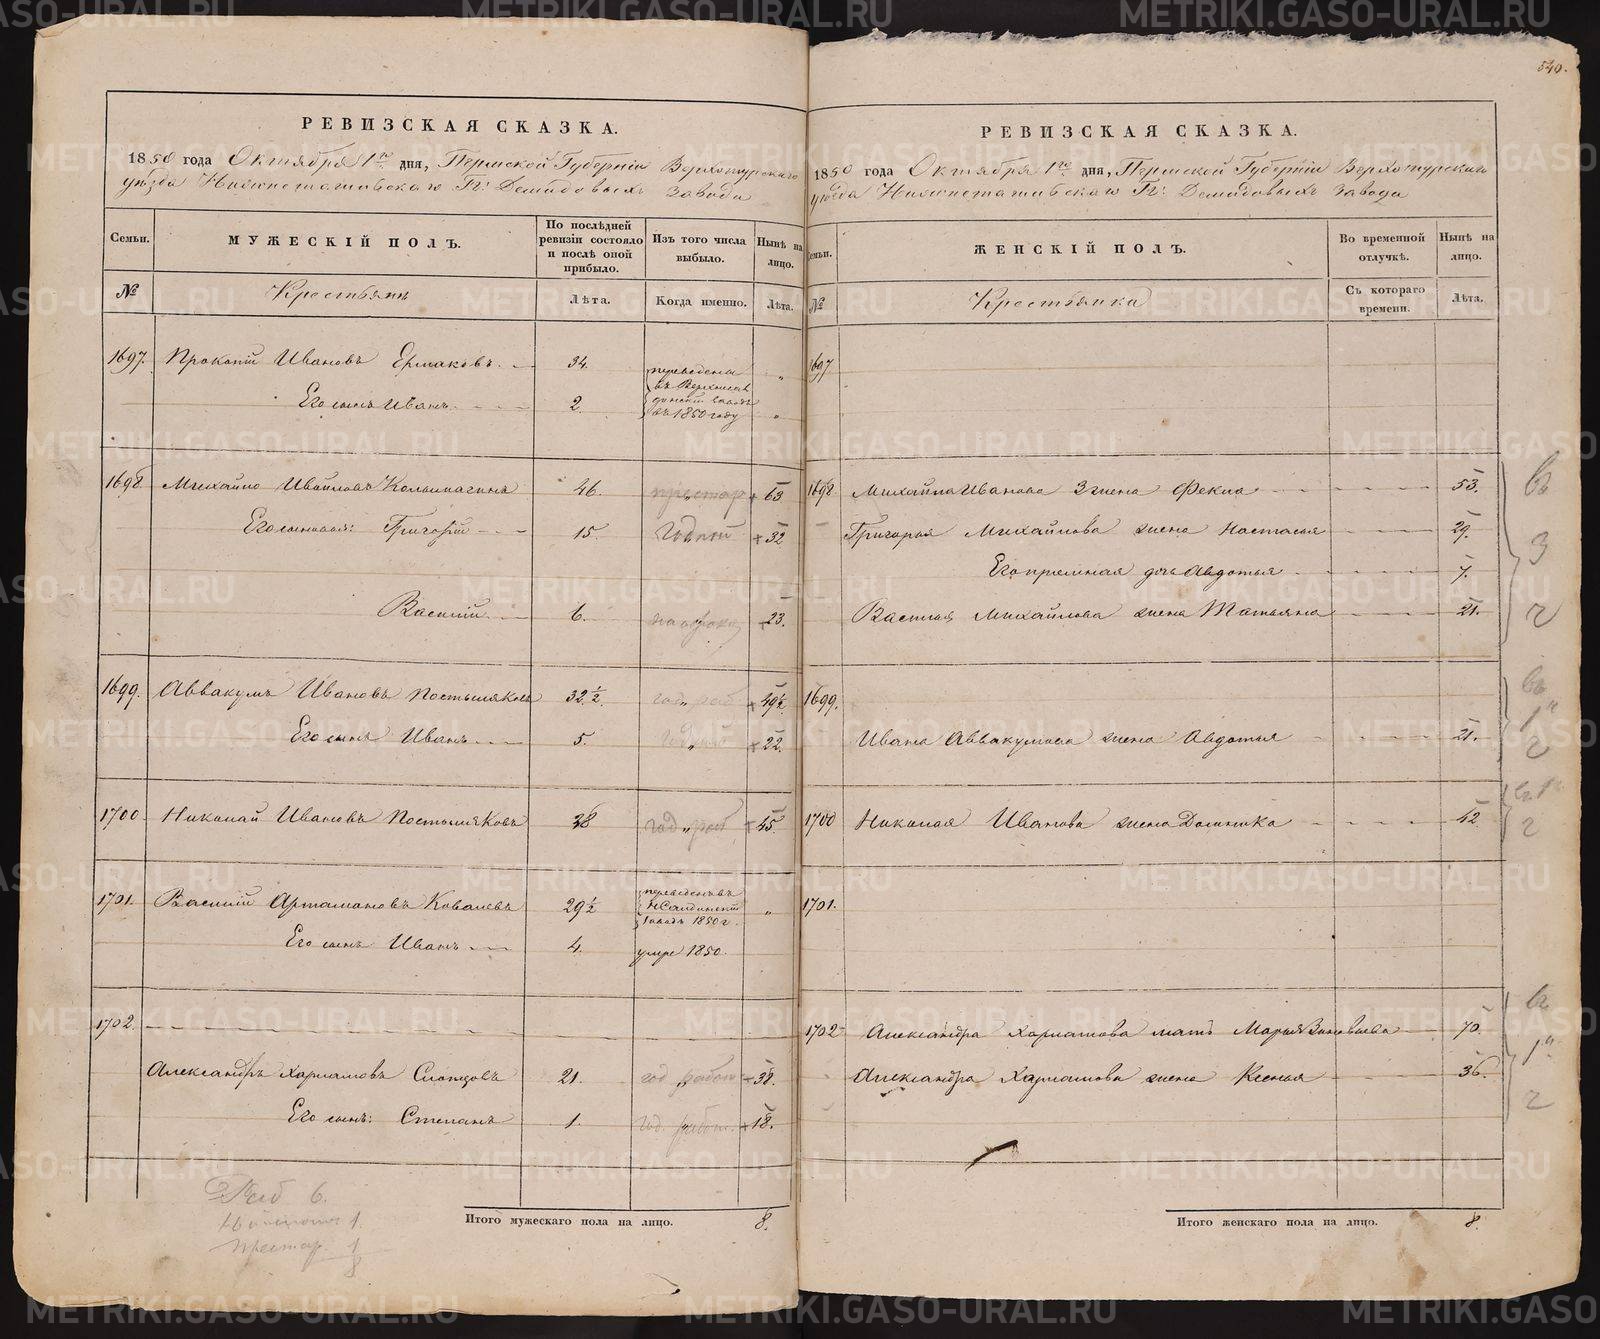 540.
РЕВИЗСКАЯ СКАЗКА.
1850 года Октября 1го дня, Пермской Губерніи Верхотурскаго
уѣзда Нижнетагильскаго Гг: Демидовыхъ Завода
Семьи.
МУЖЕСКІЙ ПОЛЪ.
По послѣдней ревизіи состояло и послѣ оной прибыло.
Изъ того числа выбыло.
Нынѣ на лицо.
№
Крестьянъ
Лѣта.
Когда именно.
Лѣта.
1697. Прокопій Ивановъ Ермаковъ 34. переведены „
Его сынъ Иванъ 2. въ 1850 году „
1698. Михайло Ивановъ 46. престар 63
Его сыновья: Григорій 15. Годной 32
Василій 6. 23.
1699. Аввакумъ Ивановъ Постыляковъ 32 ½. год раб 49½
Его сынъ Иванъ 5. 22.
1700 Николай Ивановъ Постыляковъ 28 год раб 45.
1701. Василій Артамоновъ Ковалевъ 29½ переведенъ въ Н Салдинскій заводъ 1850 г. „
Его сынъ Иванъ 4. умре 1850.
1702.
Александръ Харламовъ Слопцовъ 21. год работ 38.
Его сынъ: Степанъ 1. год. работ. 18.
Раб 6.
1.
престар. 1
8
Итого мужескаго пола на лицо. 8.
РЕВИЗСКАЯ СКАЗКА.
1850 года Октября 1го дня, Пермской Губерніи Верхотурскаго
уѣзда Нижнетагильскаго Гг: Демидовыхъ Завода
Семьи.
ЖЕНСКІЙ ПОЛЪ.
Во временной отлучкѣ.
Нынѣ на лицо.
№
Крестьянка
Съ котораго времени.
Лѣта.
1697
1698. Михайла Иванова 2 жена Фекла 53.
Григорья Михайлова жена Настасья 29.
Его пріемная дочь Авдотья 7.
Василья Михайлова жена Татьяна 21.
1699.
Ивана Аввакумова жена Авдотья 21.
1700 Николая Иванова жена Домника 42
1701.
1702 Александра Харламова мать Марья Зиновьева 70.
Александра Харламова жена Ксенья 36.
Итого женскаго пола на лицо. 8.
METRIKI.GASO-URAL.RU